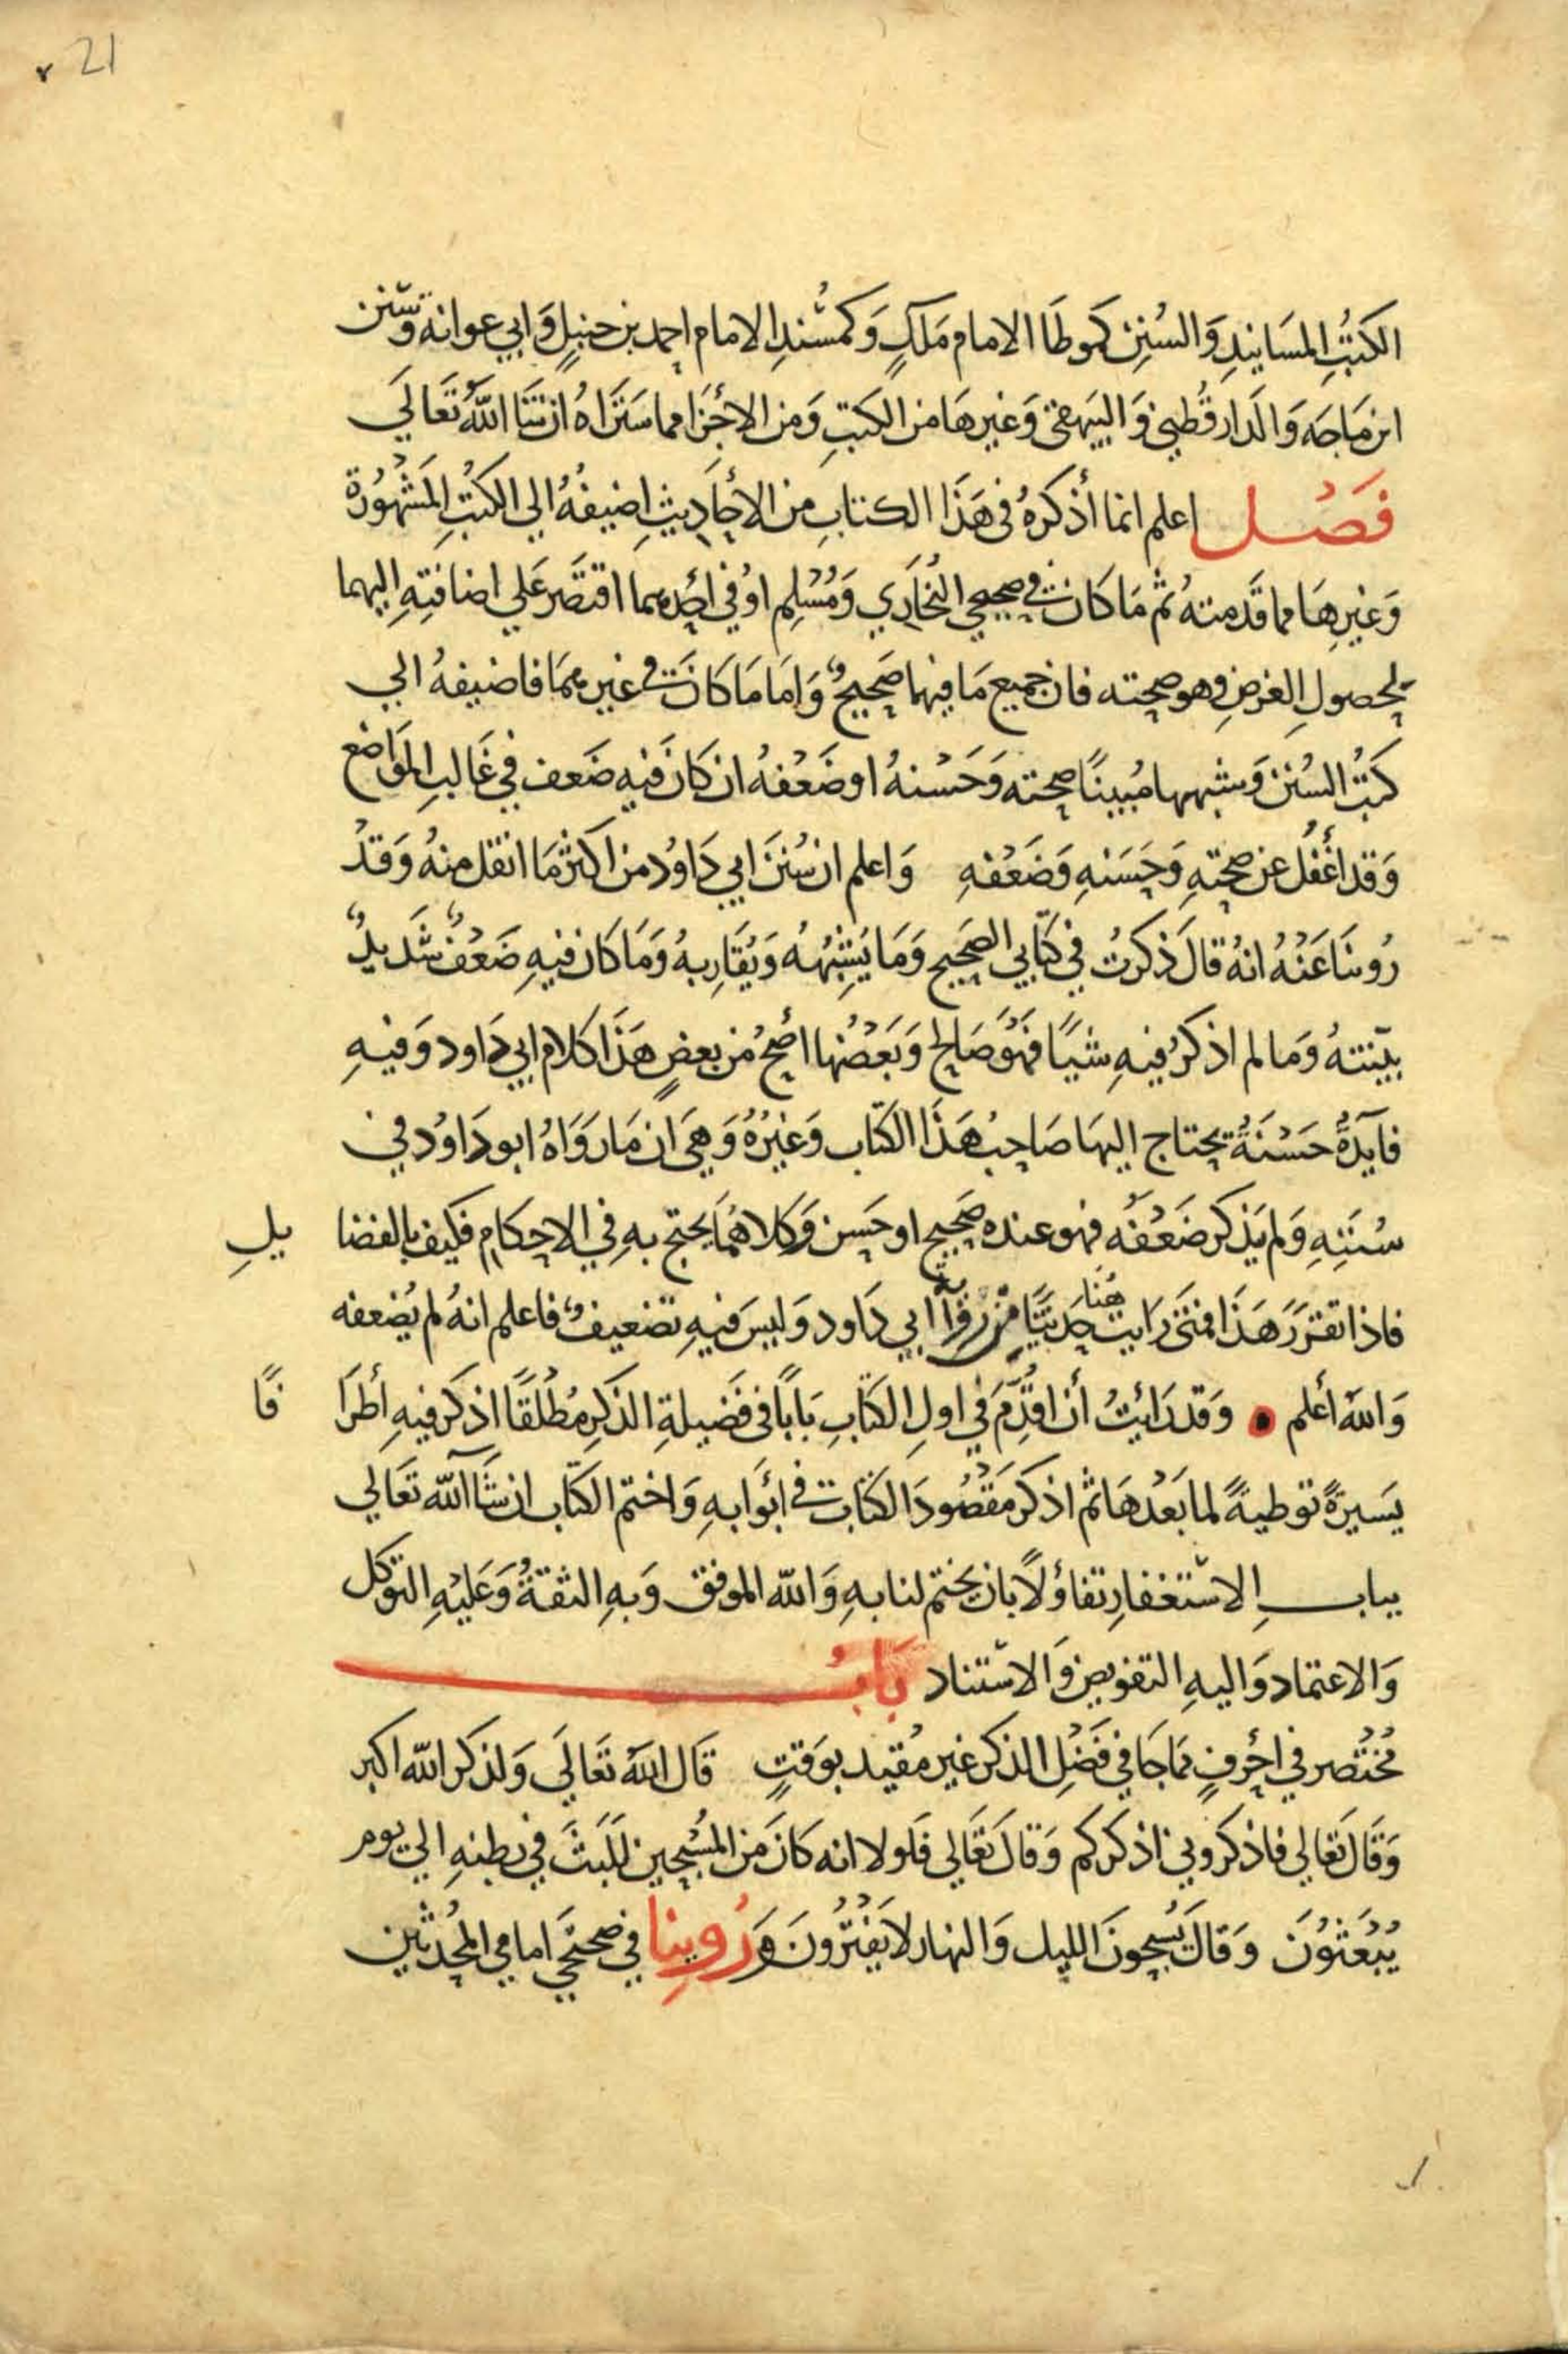 21
الكتُبِ المسَانيدِ وَالسُنِن كموطَا الامام مَلكٍ وَكمسْندِ الامام احمد بن حنبلٍ وَابي عوانه وسنن
ابن مَاجَه وَالدَارقُطني وَالبَيهقى وَغيرهَا من الكتبِ وَمن الاجْزَا مما سَتَرَاهُ ان شَا اللهُ تَعَالَي
فَصْـل اعلم انما أذكرهُ فى هَذَا الكتابِ من الاحَادِيثِ اضيفهُ الي الكتُبِ المَشْهُورَة
وَغيرِهَا مما قَدمتهُ ثم مَا كَان في صحيحي البُخَارَي وَمُسْلِم اوْ في احَدهما اقتصَر عَلي اضافتِهِ اليهما
لحصولِ الغرضِ وهو صحته فان جميع مَا فيهما صَحيحٌ وَامَا مَا كَانَ في غيرهمَا فاضيفهُ الي
كتُبُ السُنن وَشبهها مُبينًا صحته وَحَسْنهُ اوضَعْفهُ ان كَانَ فيهِ ضَعف في غَالبِ المَوَاضع
وَقد اغْفُل عن صحتِهِ وَحَسَنهِ وَضَعْفهِ وَاعلم ان سُننَ ابي دَاوُد من اكثر مَا انقل منهُ وَقدْ
رُوينَا عَنْهُ انهُ قالَ ذكرتُ في كتَابي الصَحيح وَمَا يَشِبْهُهُ وَيُقَارِبهُ وَمَا كَان فيهِ ضَعْفٌ شَديدٌ
بيّنتهُ وَمَا لم اذكرْ فيهِ شيًا فَهُوَ صَالح وَبَعْضُها اصَحُ من بعضٍ هَذَا كلام ابي دَاود وَفيهِ
فايَدةٌ حَسْنَةٌ يحتاج اليهَا صَاحبُ هَذَا الكتاب وَغيْرُهُ وَهيَ ان مَا رَوَاهُ ابو دَاوُد في
سُنَنِهِ وَلم يَذكر ضَعْفَه فهو عنده صَحيح او حَسن وَكلاهُمَا يحتج بهِ في الاحكام فكيف بالفضا يلِ
فاذا تقررَ هَذَا فمتى رَايت هُنَا حَديثًا من رواية ابي دَاود وَليسَ فيهِ تضعيفٌ فاعلم انهُ لم يُضعفه
وَاللهُ أعلم وَقد رَايْتُ أن اقُدِّمَ في اولِ الكتَابِ بَابًا فى فَضيلةِ الذكرِ مُطْلقًا اذكر فيهِ أطرَا فًا
يَسيرَةً توطيةً لما بَعْدهَا ثم اذكر مَقصُودَ الكتَاب في ابْوَابهِ وَاختم الكتَاب ان شَا اللهُ تَعَالي
بباب الاستغفارِ تفاؤلًا بان يختم لنا بهِ وَاللهُ الموفق وَبهِ الثقةُ وَعَليْهِ التوكل
وَالاعتماد وَاليهِ التفويض وَالاسْتناد بَابُ
مُختْصر في احْرفٍ مما جَا في فَضْلِ الذكر غير مُقيد بوَقتٍ قَال اللهُ تَعَالَي وَلذكر الله اكبر
وَقَالَ تَعَالي فاذكروني اذكركم وَقالَ تَعَالي فَلولا انه كَانَ من المُسَبحين لَلَبثَ في بطنهِ الي يوم
يُبْعَثوُنَ وَقَالَ يُسَبحونَ الليل وَالنهار لا يَفتُرُونَ وَرُوينا في صحيحَي امامي المُحدثين